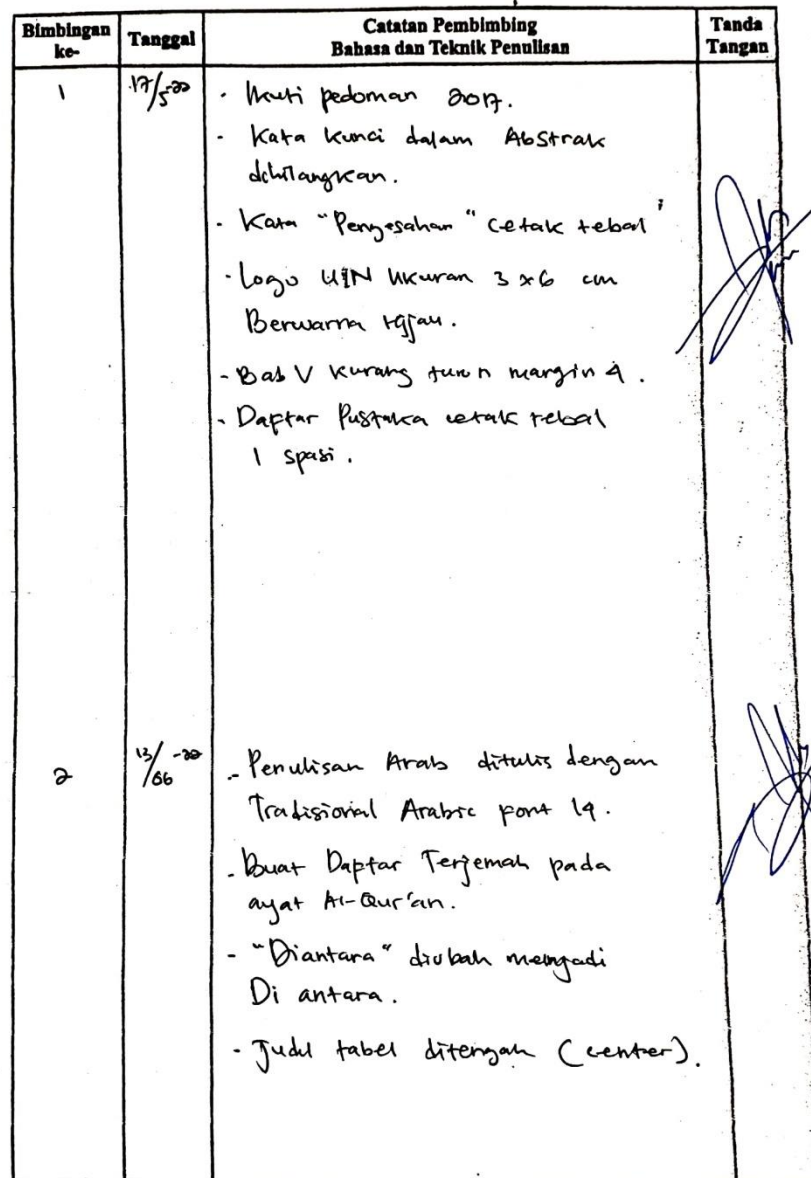 Bimbingan ke- Tanggal Catatan Pembimbing Bahasa dan Teknik Penulisan Tanda Tangan
1 17/5-22 - Ikuti pedoman 2017.
- Kata Kunci dalam Abstrak
dihilangkan.
- Kata "Pengesahan" cetak tebal
- Logo UIN Ukuran 3 x 6 cm
Berwarna Hijau.
- Bab V kurang turun margin 4.
- Daftar Pustaka cetak tebal
1 spasi.
2 13/06-22 - Penulisan Arab ditulis dengan
Tradisional Arabic font 14.
- Buat Daftar Terjemah pada
ayat Al-Qur'an.
- "Diantara" diubah menjadi
Di antara.
- Judul tabel ditengah (center).